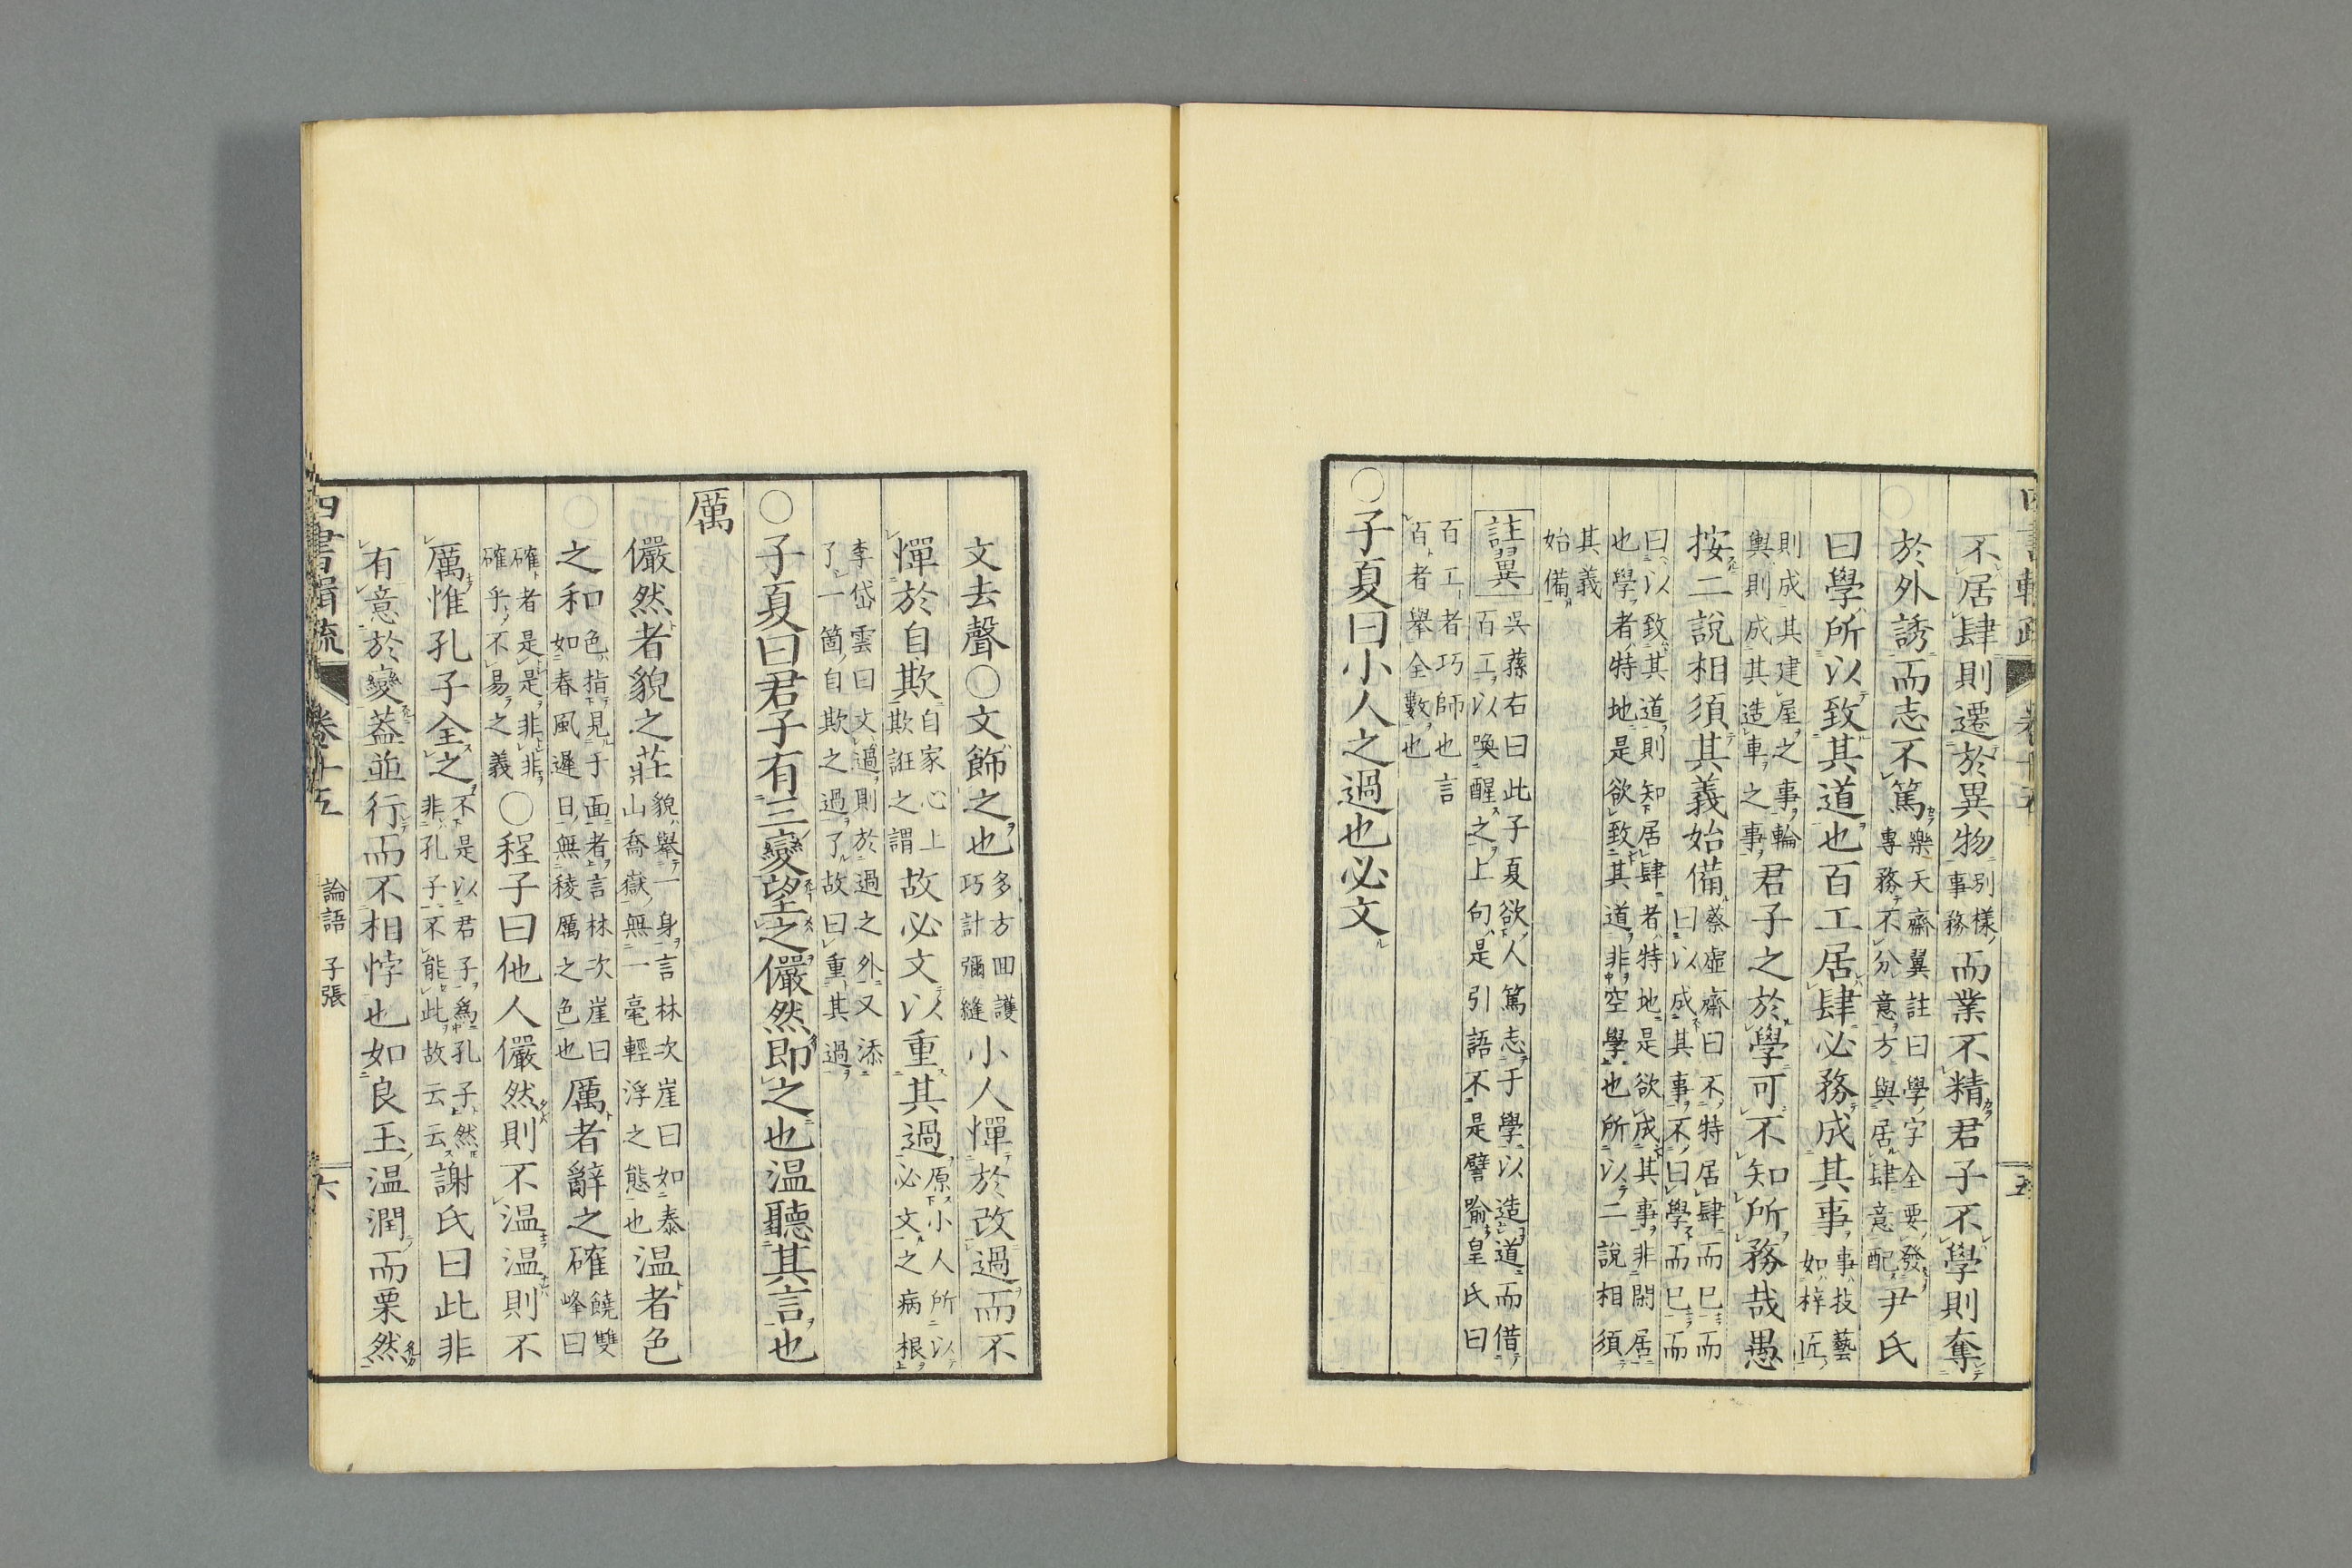 不居肆則遷於異物別樣事務而業不精君子不學則奪
於外誘而志不篤樂天齋翼註曰學字全要發專務不分意方與居肆意配尹氏
曰學所以致其道也百工居肆必務成其事事技藝如梓匠
則成其建屋之事輪輿則成其造車之事君子之於學可不知所務哉愚
按二說相須其義始備蔡虛齋曰不特居肆而已而曰以成其事不曰學而已而
曰以致其道則知居肆者特地是欲成其事非閑居也學者特地是欲致其道非空學也所以二說相須
其義始備
註異吳蓀右曰此子夏欲人篤志于學以造道而借百工以喚醒之上句是引語不是譬踰皇氏曰
百工者巧師也言百者舉全數也
○子夏曰小人之過也必文
四書輯疏 卷十五 五
文去聲○文飾之也多方回護巧計彌縫小人憚於改過而不
憚於自欺自家心上欺誑之謂故必文以重其過原小人所以必文之病根
李岱雲曰文過則於過之外又添了一箇自欺之過了故曰重其過
○子夏曰君子有三變望之儼然即之也温聽其言也
厲
儼然者貌之莊貌舉一身言林次崖曰如泰山喬嶽無一毫輕浮之態也温者色
之和色指見于面者言林次崖曰如春風遲日無稜厲之色也厲者辭之確饒雙峰曰
確者是是非非確乎不易之義○程子曰他人儼然則不温温則不
厲惟孔子全之不是以君子爲孔子然非孔子不能此故云云謝氏曰此非
有意於變蓋並行而不相悖也如良玉温潤而栗然
四書輯疏 卷十五 論語 子張 六